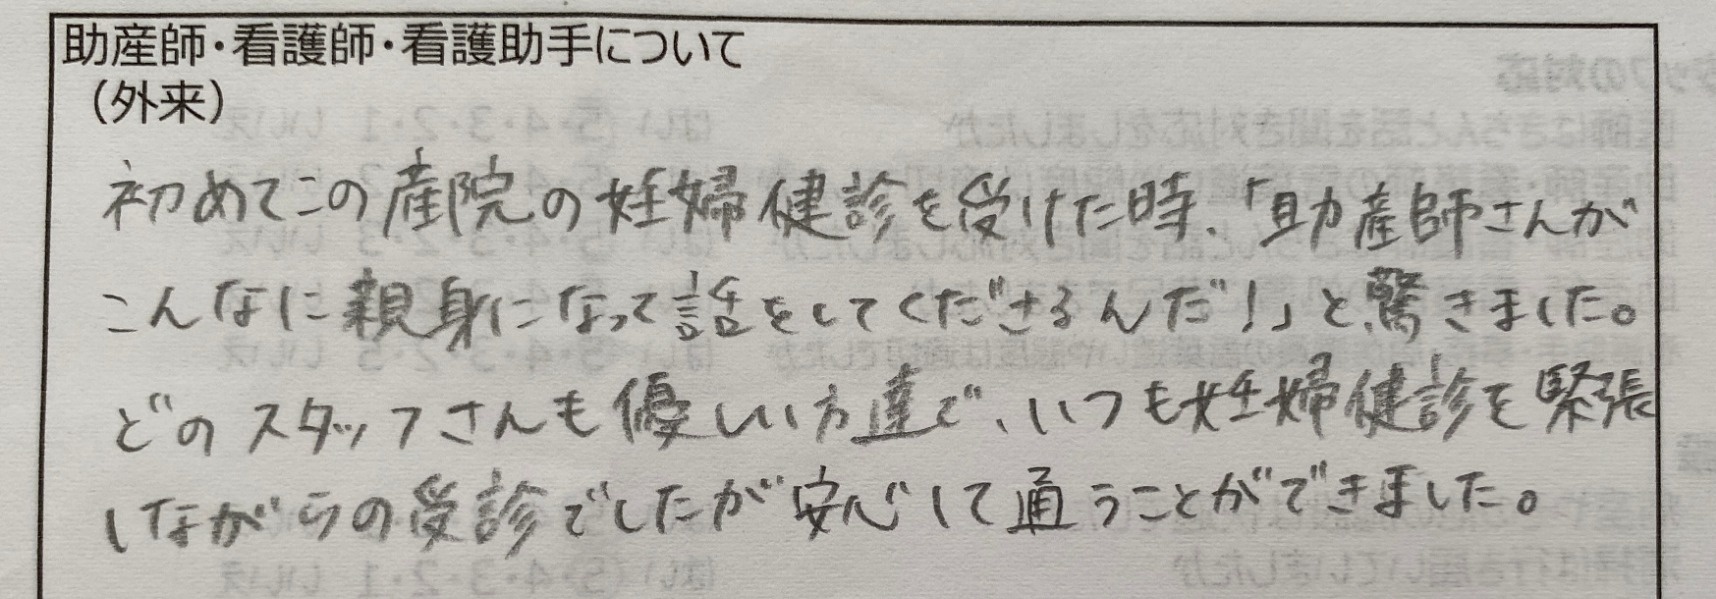 助産師・看護師・看護助手について
（外来）
初めてこの産院の妊婦健診を受けた時、「助産師さんが
こんなに親身になって話をしてくださるんだ！」と驚きました。
どのスタッフさんも優しい方達で、いつも妊婦健診を緊張
しながらの受診でしたが安心して通うことができました。